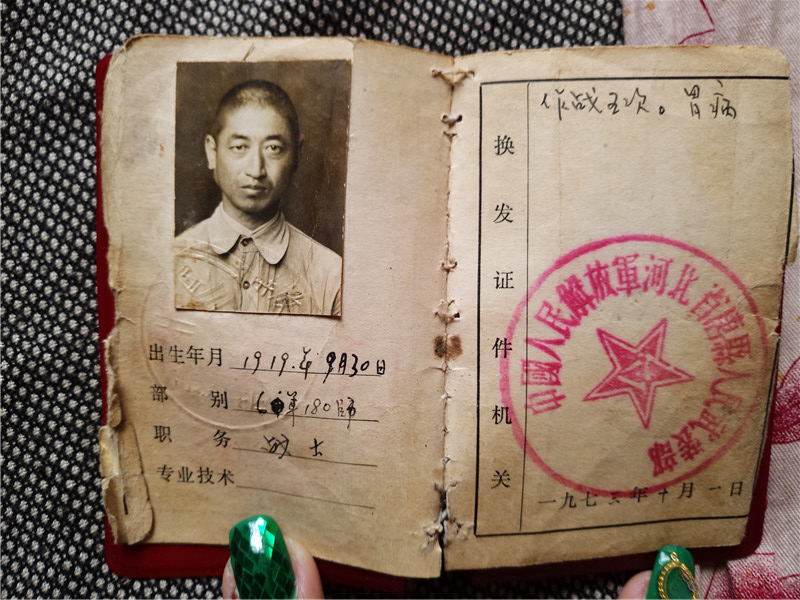 出生年月 1919.年9月30日
部 别 180师
职 务 战士
专业技术
作战五次。胃病
换发证件机关
中國人民解放軍河北省 縣人民武裝部
一九七三年十月一日